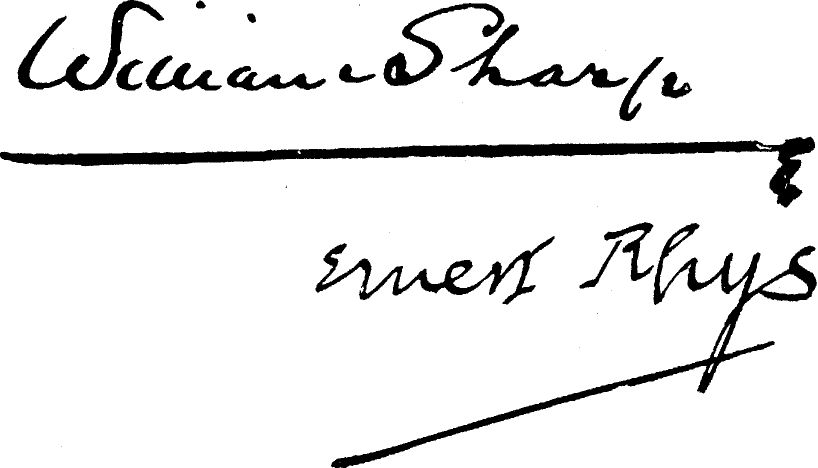 William Sharp
Ernest Rhys